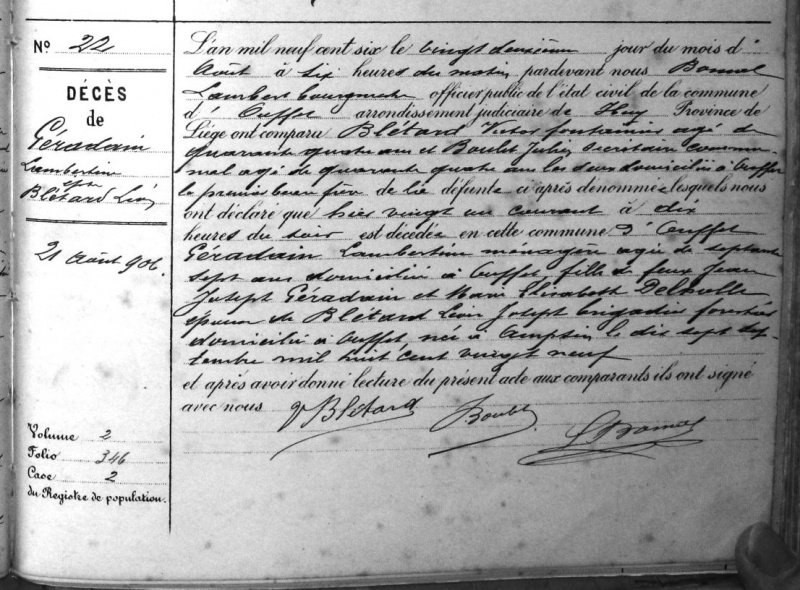 N° 22
DÉCÈS
de
Géradain
Lambertine
épse
Blétard Léon
21 Août 906.
Volume 2
Folio 346
Case 2
du Registre de population.
L'an mil neuf cent six le vingt deuxième jour du mois d'
Août à six heures du matin, pardevant nous Bonmal
Lambert bourgmestre officier public de l'état civil de la commune
d' Ouffet arrondissement judiciaire de Huy Province de
Liége ont comparu Blétard Victor fontainier agé de
quarante quatre ans et Boulet Jules, secrétaire commu-
nal agé de quarante quatre ans les deux domiciliés à Ouffet
le premier beau frère de la défunte ci après dénommée lesquels nous
ont déclaré que hier vingt un courant à dix
heures du soir est décédée en cette commune d'Ouffet
Géradain Lambertine ménagère agée de septante
sept ans domiciliée à Ouffet fille de feux Jean
Joseph Géradain et Marie Elisabeth
épouse de Blétard Léon Joseph brigadier forestier
domicilié à Ouffet, née à Ampsin le dix sept Sep-
tembre mil huit cent vingt neuf
et après avoir donné lecture du présent acte aux comparants ils ont signé
avec nous VBlétard Boulet LBonmal